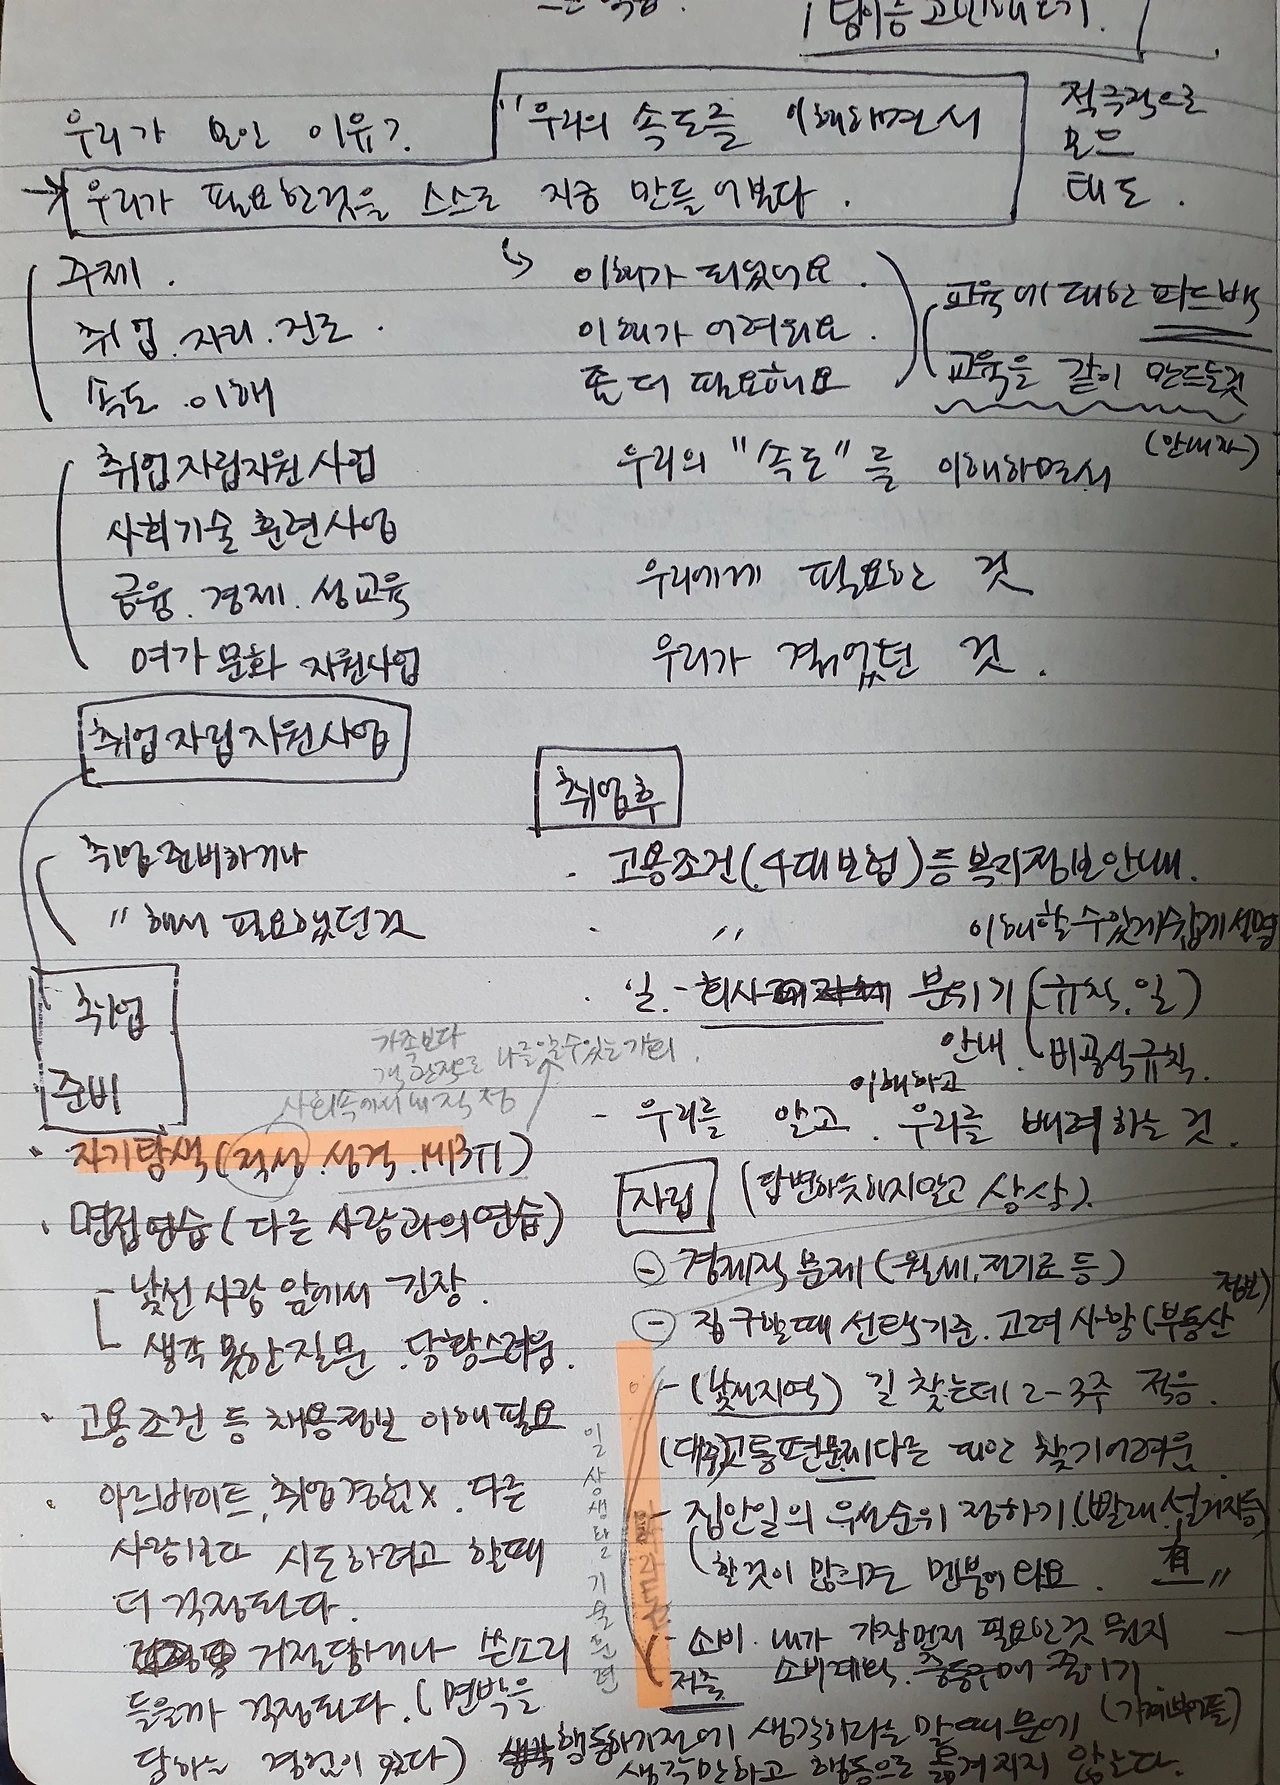 고민해보기.
우리가 모인 이유?
"우리의 속도를 이해하면서
→ 우리가 필요한것을 스스로 지금 만들어본다.
적극적으로
모으
태도.
주제.
취업. 자리. 진로.
속도. 이해
↳ 이해가 되었어요.
이해가 어려워요.
좀 더 필요해요
교육에 대한 피드백
교육을 같이 만드는것
(안내자)
취업자립지원사업
사회기술훈련사업
금융. 경제. 성교육
여가문화 지원사업
우리의 "속도"를 이해하면서
우리에게 필요한 것
우리가 겪었던 것.
취업자립지원사업
취업준비하거나
〃 해서 필요했던것
취업
준비
가족보다
객관적으로 나를 알 수 있는 기회.
사회속에서 내 적성
· 자기탐색(적성. 성격. MBTI)
· 면접연습(다른 사람과의 연습)
낯선 사람 앞에서 긴장.
생각 못한 질문. 당황스러움.
· 고용조건 등 채용정보 이해필요
· 아르바이트, 취업경험X. 다른
사람보다 시도하려고 할때
더 걱정된다.
거절당하거나 쓴소리
들을까 걱정된다. (면박을
당하는 경험이 있다)
취업후
· 고용조건(4대보험)등 복지정보안내.
· 〃 이해할수있게쉽게설명
· 일 - 회사 분위기 (규칙. 일)
안내. 비공식규칙.
- 우리를 알고. 이해하고 우리를 배려하는 것.
자립 (답변하듯하지말고 상상).
- 경제적 문제(월세, 전기료 등)
- 집구할때 선택기준. 고려 사항(부동산 정보)
- (낯선지역) 길 찾는데 2-3주 적응.
(대중교통편문제 다른 대안 찾기어려움
- 집안일의 우선순위 정하기(빨래 설거지등)
할것이 많으면 멘붕이 와요.
- 소비. 내가 가장먼저 필요한것 뭔지
저축 소비계획. 충동구매 줄이기
(가계부어플)
일상생활기술훈련
행동하기전에 생각하라는 말 때문에
생각만하고 행동으로 옮겨지지 않는다.